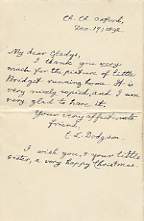 Ch. Ch. Oxford,
Dec. 19,
My dear Gladys,
I thank you very
much for the picture of little
Bridget running home. It is
very nicely
and I am
very glad to have it.
Your very affect:nate
friend,
C. L. Dodgson.
I wish you, & your little
sister, a very happy Christmas.